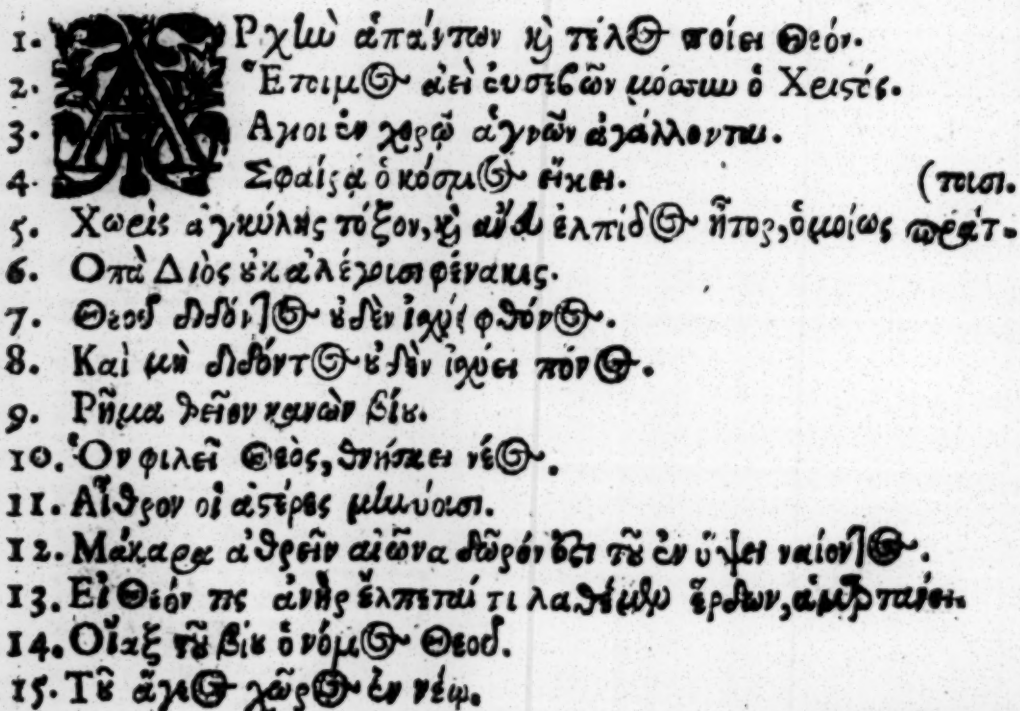 1. ΑΡχὴν ἁπάντων καὶ τέλος ποίει Θεόν.
2. Ἕτοιμος ἀεὶ εὐσεβῶν ὁ Χριστός.
3. Ἁγνοὶ ἐν χορῷ ἁγνῶν ἀγάλλονται.
4. Σφαίρᾳ ὁ κόσμος εἴκει. (τουσι.
5. Χωρὶς ἀγκύλης τόξον, καὶ ἄνευ ἐλπίδος ἦτορ, ὁμοίως πράτ-
6. Οπὰ Διὸς οὐκ ἀλέγουσι φένακες.
7. Θεοῦ διδόντος οὐδὲν ἰσχύει φθόνος.
8. Καὶ μὴ διδόντος οὐδὲν ἰσχύει πόνος.
9. Ρῆμα θεῖον κανὼν βίου.
10. Ὃν φιλεῖ Θεὸς, θνήσκει νέος.
11. Αἶθρον οἱ ἀστέρες μηνύασι.
12. Μάκαρα ἀθρεῖν αἰῶνα δῶρόν ἐστι τοῦ ἐν ὕψει ναίοντος.
13. Εἰ Θεόν τις ἀνὴρ ἔλπεταί τι λαθέμεν ἔρδων, ἁμαρτάνει.
14. Οἴαξ τοῦ βίου ὁ νόμος Θεοῦ.
15. Τοῦ ἄγεος χῶρος ἐν νέῳ.